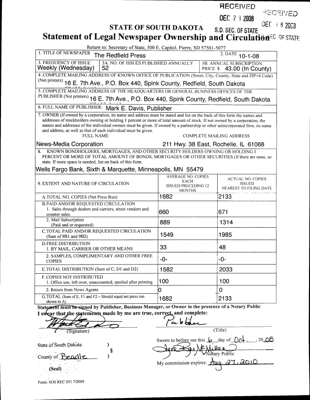 RECEIVED
RECEIVED
DEC 2 1 2008
DEC 1 5 2008
STATE OF SOUTH DAKOTA
S.D. SEC. OF STATE
Statement of Legal Newspaper Ownership and Circulation
SEC OF STATE
Return to: Secretary of State, 500 E. Capitol, Pierre, SD 57501-5077
1. TITLE OF NEWSPAPER The Redfield Press
2. DATE 10-1-08
3. FREQUENCY OF ISSUE Weekly (Wednesday)
3A. NO. OF ISSUES PUBLISHED ANNUALLY 52
3B. ANNUAL SUBSCRIPTION PRICE $ 43.00 (In County)
4. COMPLETE MAILING ADDRESS OF KNOWN OFFICE OF PUBLICATION (Street, City, County, State and ZIP+4 Code)
(Not printers) 16 E. 7th Ave., P.O. Box 440, Spink County, Redfield, South Dakota
5. COMPLETE MAILING ADDRESS OF THE HEADQUARTERS OR GENERAL BUSINESS OFFICES OF THE
PUBLISHER (Not printers) 16 E. 7th Ave., P.O. Box 440, Spink County, Redfield, South Dakota
6. FULL NAME OF PUBLISHER: Mark E. Davis, Publisher
7. OWNER (If owned by a corporation, its name and address must be stated and also the names and
addresses of stockholders owning or holding 1 percent or more of total amount of stock. If not owned by a corporation, the
names and addresses of the individual owners must be given. If owned by a partnership or other unincorporated firm, its name
and address, as well as that of each individual must be given.
FULL NAME
COMPLETE MAILING ADDRESS
News-Media Corporation
211 Hwy. 38 East, Rochelle, IL 61068
8. KNOWN BONDHOLDERS, MORTGAGES, AND OTHER SECURITY HOLDERS OWNING OR HOLDING 1
PERCENT OR MORE OF TOTAL AMOUNT OF BONDS, MORTGAGES OR OTHER SECURITIES (If there are none, so
state. If more space is needed, list on back of this form.
Wells Fargo Bank, Sixth & Marquette, Minneapolis, MN 55479
9. EXTENT AND NATURE OF CIRCULATION
AVERAGE NO. COPIES EACH ISSUED PRECEDING 12 MONTHS
ACTUAL NO. COPIES ISSUED NEAREST TO FILING DATE
A. TOTAL NO. COPIES (Net Press Run) 1682 2133
B. PAID AND/OR REQUESTED CIRCULATION
1. Sales through dealers and carriers, street vendors and counter sales. 660 671
2. Mail Subscription (Paid and or requested) 889 1314
C. TOTAL PAID AND/OR REQUESTED CIRCULATION (Sum of 9B1 and 9B2) 1549 1985
D. FREE DISTRIBUTION
1. BY MAIL, CARRIER OR OTHER MEANS 33 48
2. SAMPLES, COMPLIMENTARY AND OTHER FREE COPIES -0- -0-
E. TOTAL DISTRIBUTION (Sum of C, D1 and D2) 1582 2033
F. COPIES NOT DISTRIBUTED
1. Office use, left over, unaccounted, spoiled after printing 100 100
2. Return from News Agents 0 0
G. TOTAL (Sum of E, F1 and F2 - Should equal net press run shown in A) 1682 2133
Statement must be signed by Publisher, Business Manager, or Owner in the presence of a Notary Public
I swear that the statements made by me are true, correct, and complete:
Publisher
(Signature)
(Title)
State of South Dakota )
§
County of Beadle )
Sworn to before me this 6 day of Oct, 2008
Notary Public
(Seal)
My commission expires: Aug 27, 2010
Form: SOS REC 051 7/2004